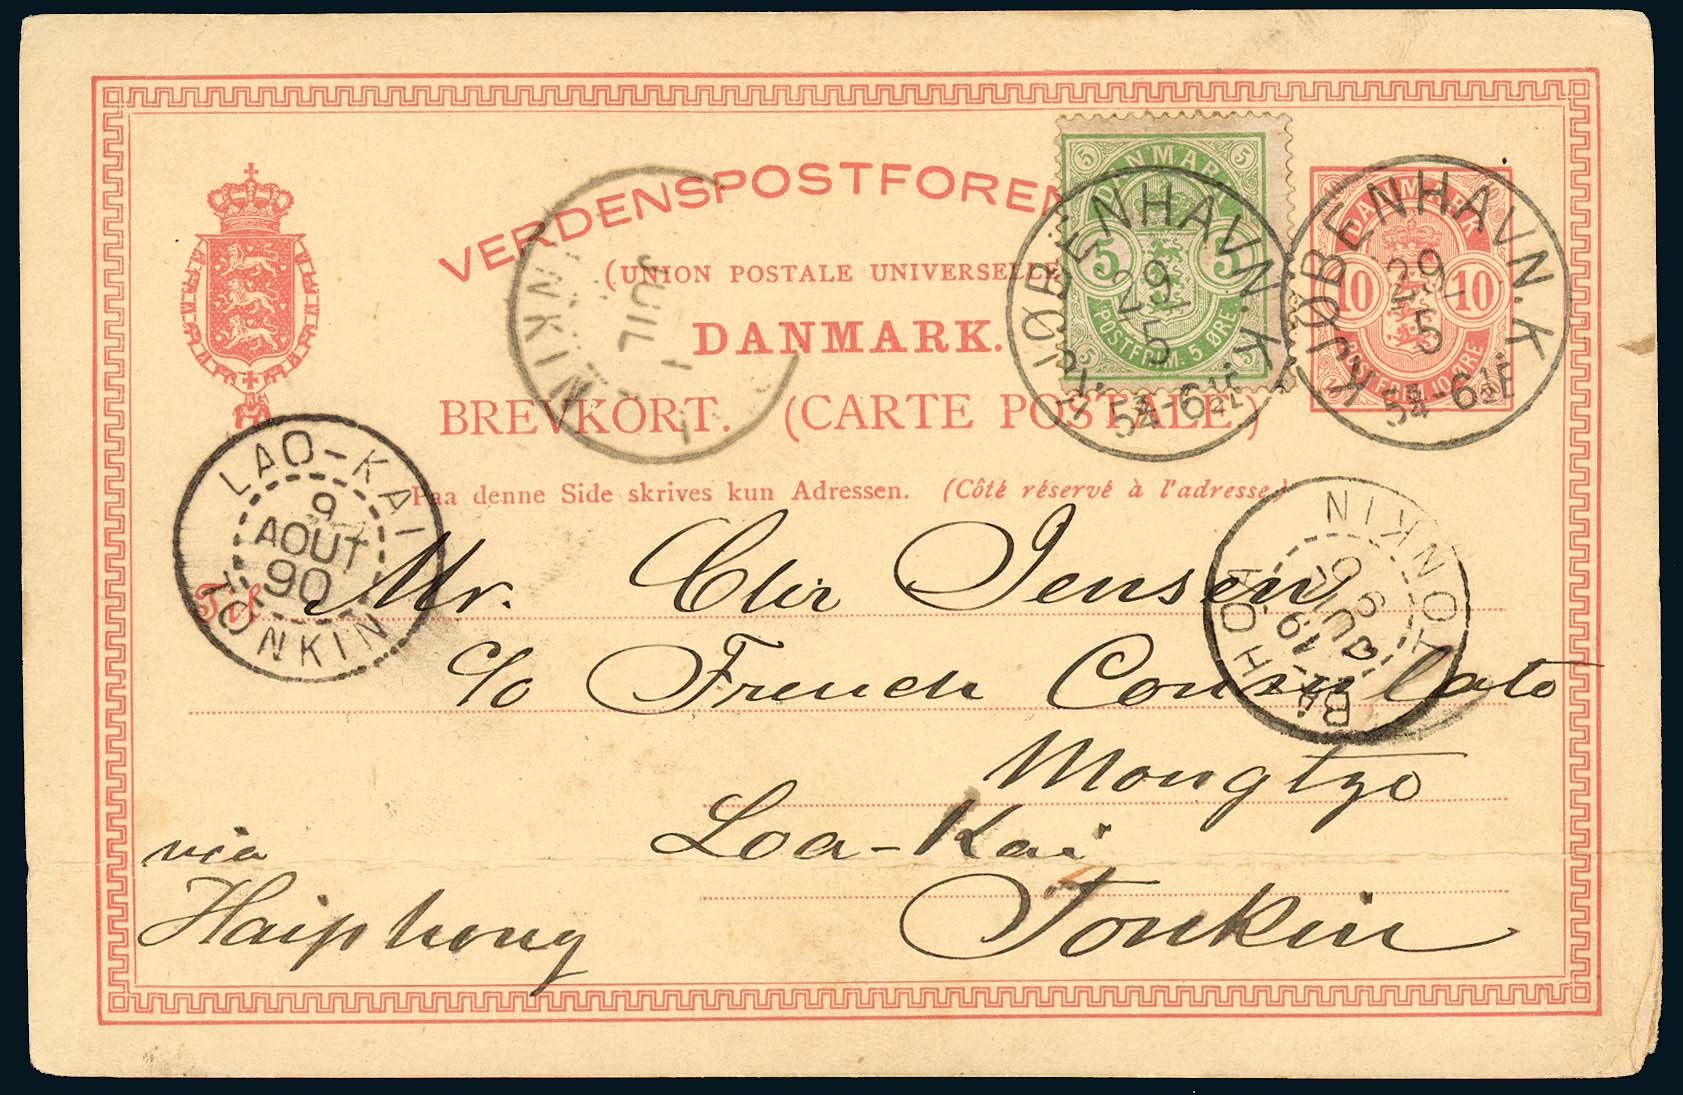 VERDENSPOSTFOREN
(UNION POSTALE UNIVERSELLE
DANMARK.
BREVKORT. (CARTE POSTALE.)
Paa denne Side skrives kun Adressen. (Côté réservé à l'adresse.)
DANMARK
5 5
5 5
POSTFRIM. 5 ØRE
5 5
DANMARK
10 10
POSTFRIM. 10 ØRE
KJØBENHAVN. K.
29
5
KJØBENHAVN. K.
29
5
JUIL
LAO-KAI
9
AOUT
90
TONKIN
BAC-HAT
TONKIN
19
90
Til Mr. Chr Jensen
c/o French Consulate
Mongtze
Loa-Kai
Tonkin
via
Haiphong